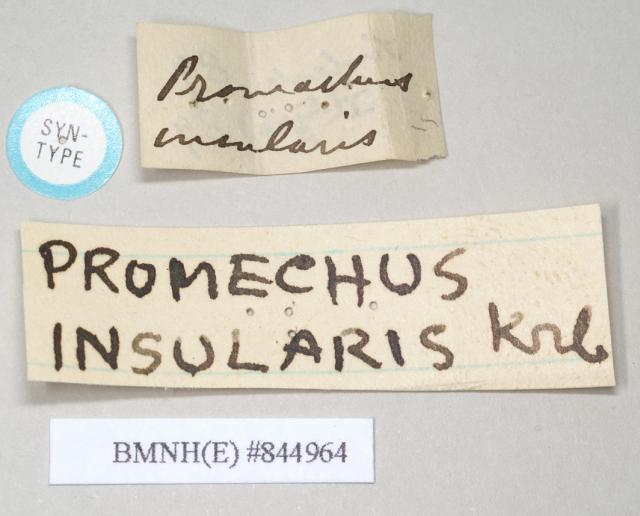 Promechus
insularis
SYN-
TYPE
PROMECHUS
INSULARIS Krb
BMNH(E) #844964